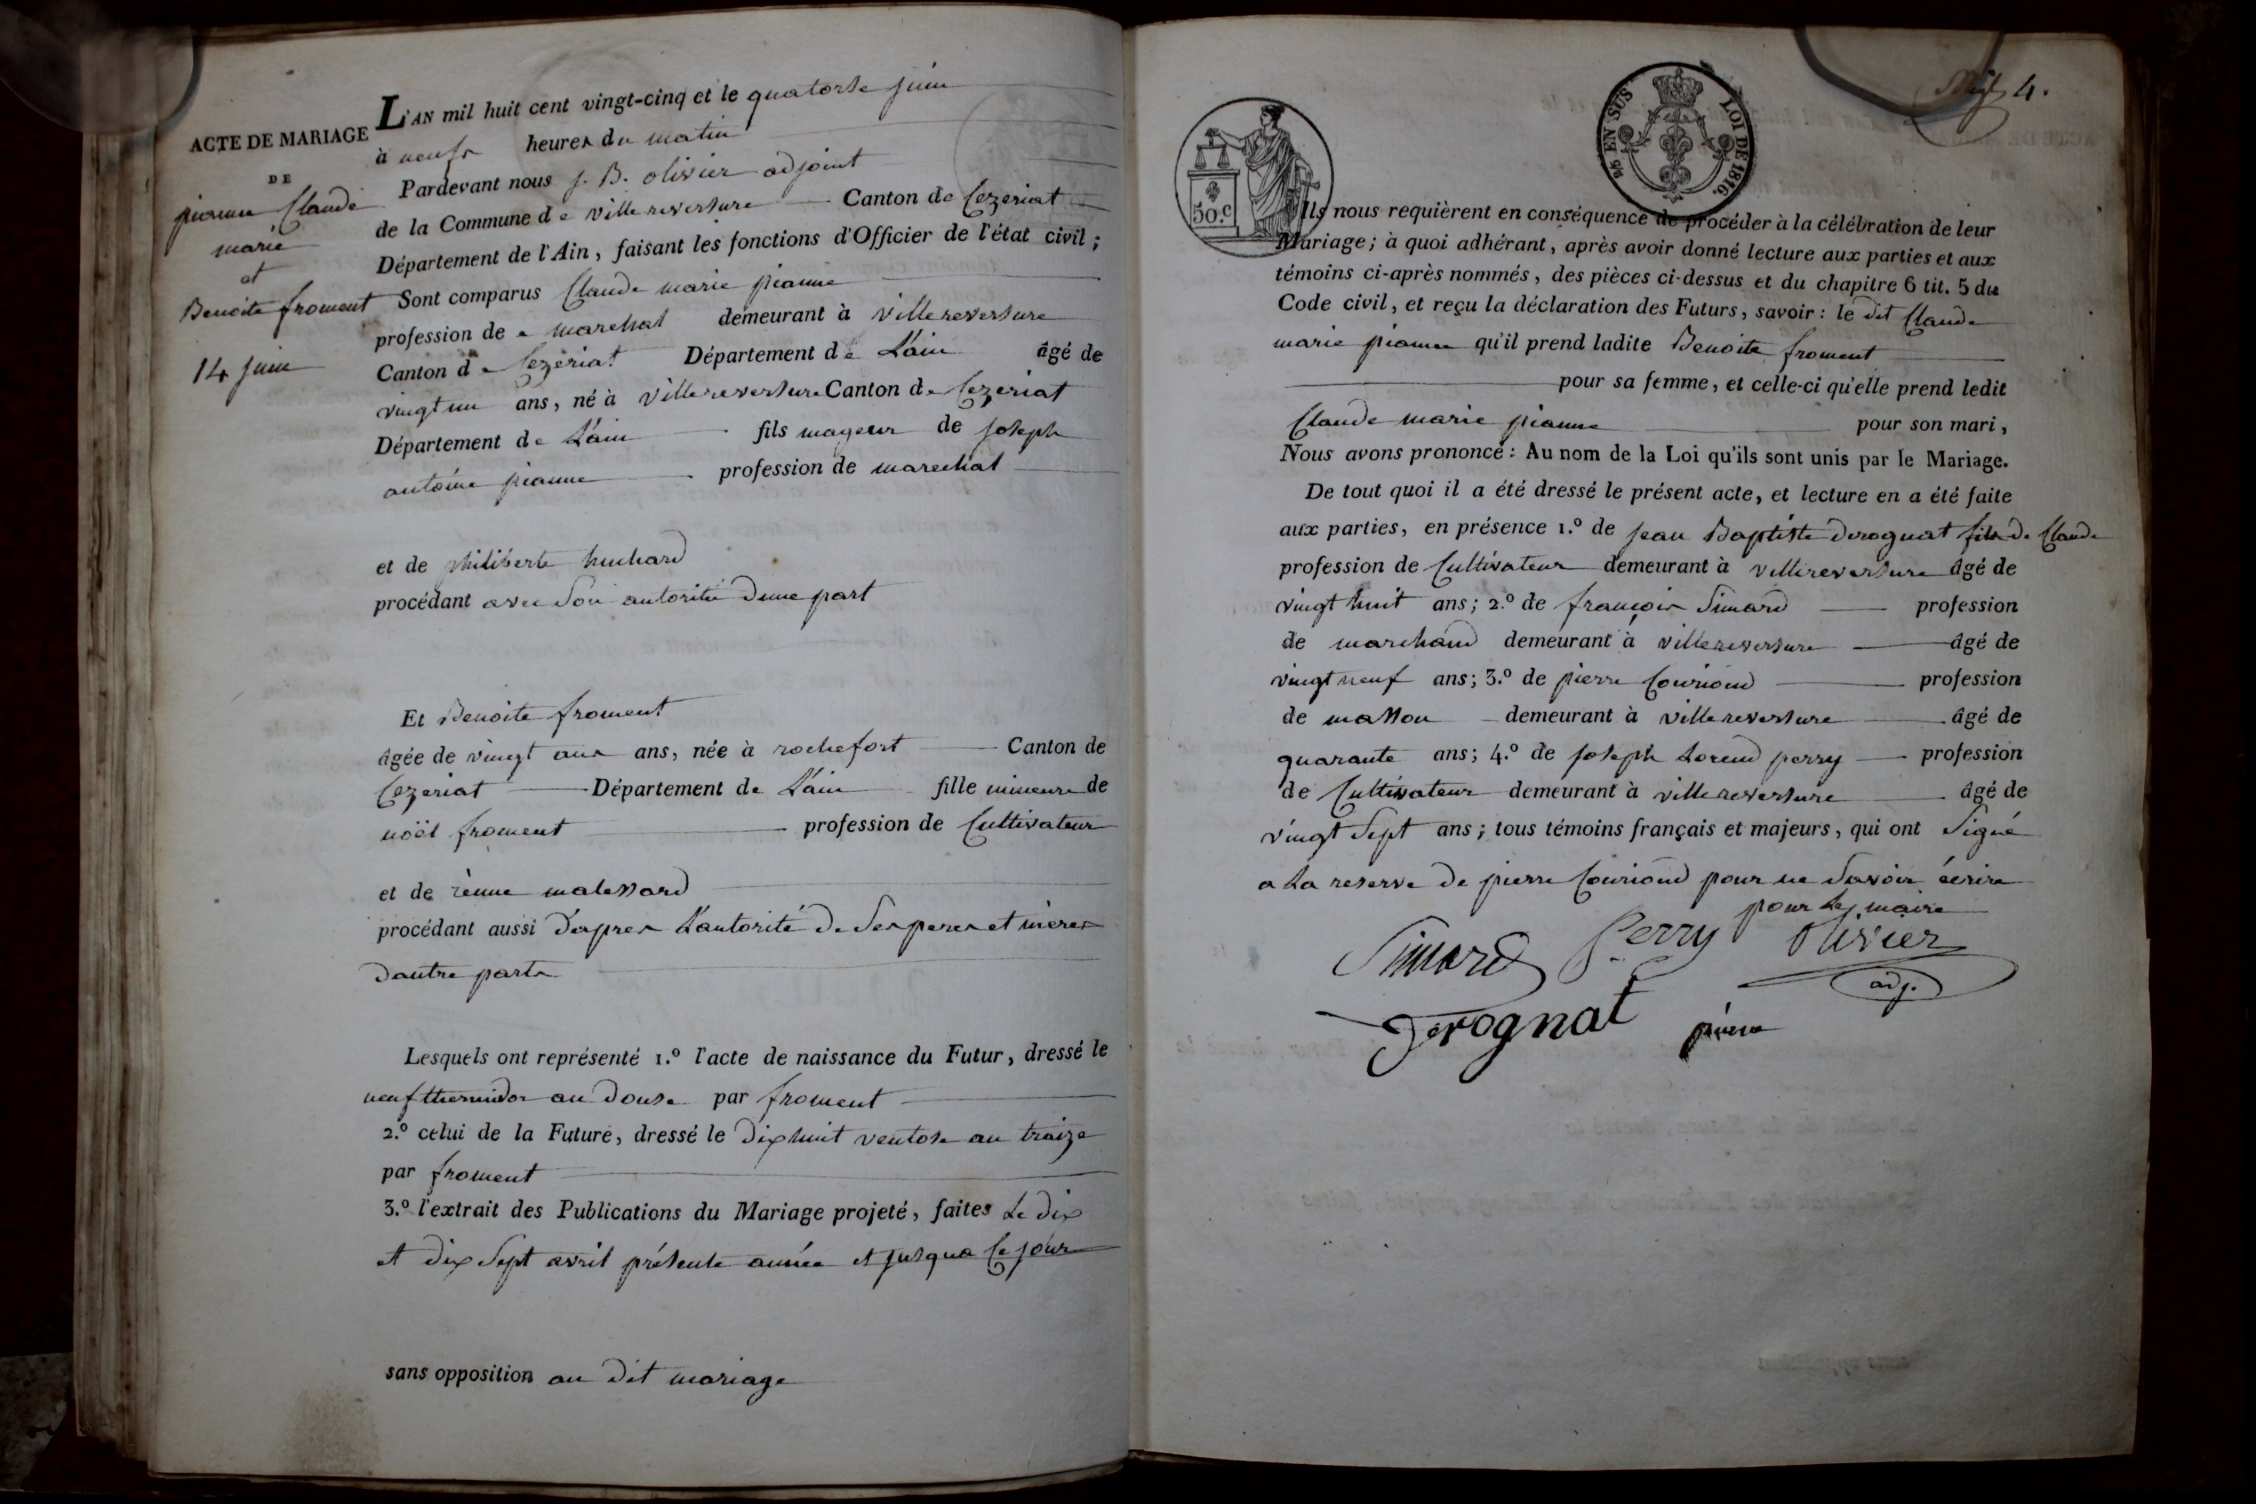 ACTE DE MARIAGE
DE
pianne Claude
marie
et
Benoite froment
14 juin
L'AN mil huit cent vingt-cinq et le quatorse juin
à neufs heures du matin
Pardevant nous J. B. olivier adjoint
de la Commune de villereversure Canton de Cezeriat
Département de l'Ain, faisant les fonctions d'Officier de l'état civil;
Sont comparus Claude marie pianne
profession de marechal demeurant à villereversure
Canton de Cezériat Département de L'ain âgé de
vingt un ans, né à villereversure Canton de Cezeriat
Département de L'ain fils mageur de joseph
antoine pianne profession de marechal
et de philiberte huchard
procédant avec son autorité dune part
Et Benoite froment
âgée de vingt ans ans, née à rochefort Canton de
Cezeriat Département de L'ain fille mineure de
noël froment profession de Cultivateur
et de malessard
procédant aussi d'apres L'autorité de ses peres et mères
dautre parts
Lesquels ont représenté 1.º l'acte de naissance du Futur, dressé le
neuf thermidor an douse par froment
2.º celui de la Future, dressé le dix huit ventose an traize
par froment
3.º l'extrait des Publications du Mariage projeté, faites Le dix
et dix Sept avril présente année et jusqua Ce jour
sans opposition au dit mariage
4.
50.c
EN SUS
LOI DE 1816.
Ils nous requièrent en conséquence de procéder à la célébration de leur
Mariage; à quoi adhérant, après avoir donné lecture aux parties et aux
témoins ci-après nommés, des pièces ci-dessus et du chapitre 6 tit. 5 du
Code civil, et reçu la déclaration des Futurs, savoir: le dit Claude
marie pianne qu'il prend ladite Benoite froment
pour sa femme, et celle-ci qu'elle prend ledit
Claude marie pianne pour son mari,
Nous avons prononcé: Au nom de la Loi qu'ils sont unis par le Mariage.
De tout quoi il a été dressé le présent acte, et lecture en a été faite
aux parties, en présence 1.º de jean Baptiste derognat fils de Claude
profession de Cultivateur demeurant à villereversure âgé de
vingt huit ans; 2.º de françois Simard profession
de marchand demeurant à villereversure âgé de
vingt neuf ans; 3.º de pierre Couriond profession
de masson demeurant à villereversure âgé de
quarante ans; 4.º de joseph Lorend perry profession
de Cultivateur demeurant à villereversure âgé de
vingt Sept ans; tous témoins français et majeurs, qui ont Signé
a La reserve de pierre Couriond pour ne Savoir écrire
pour Le maire
Simard Perry olivier
adj.
Derognat